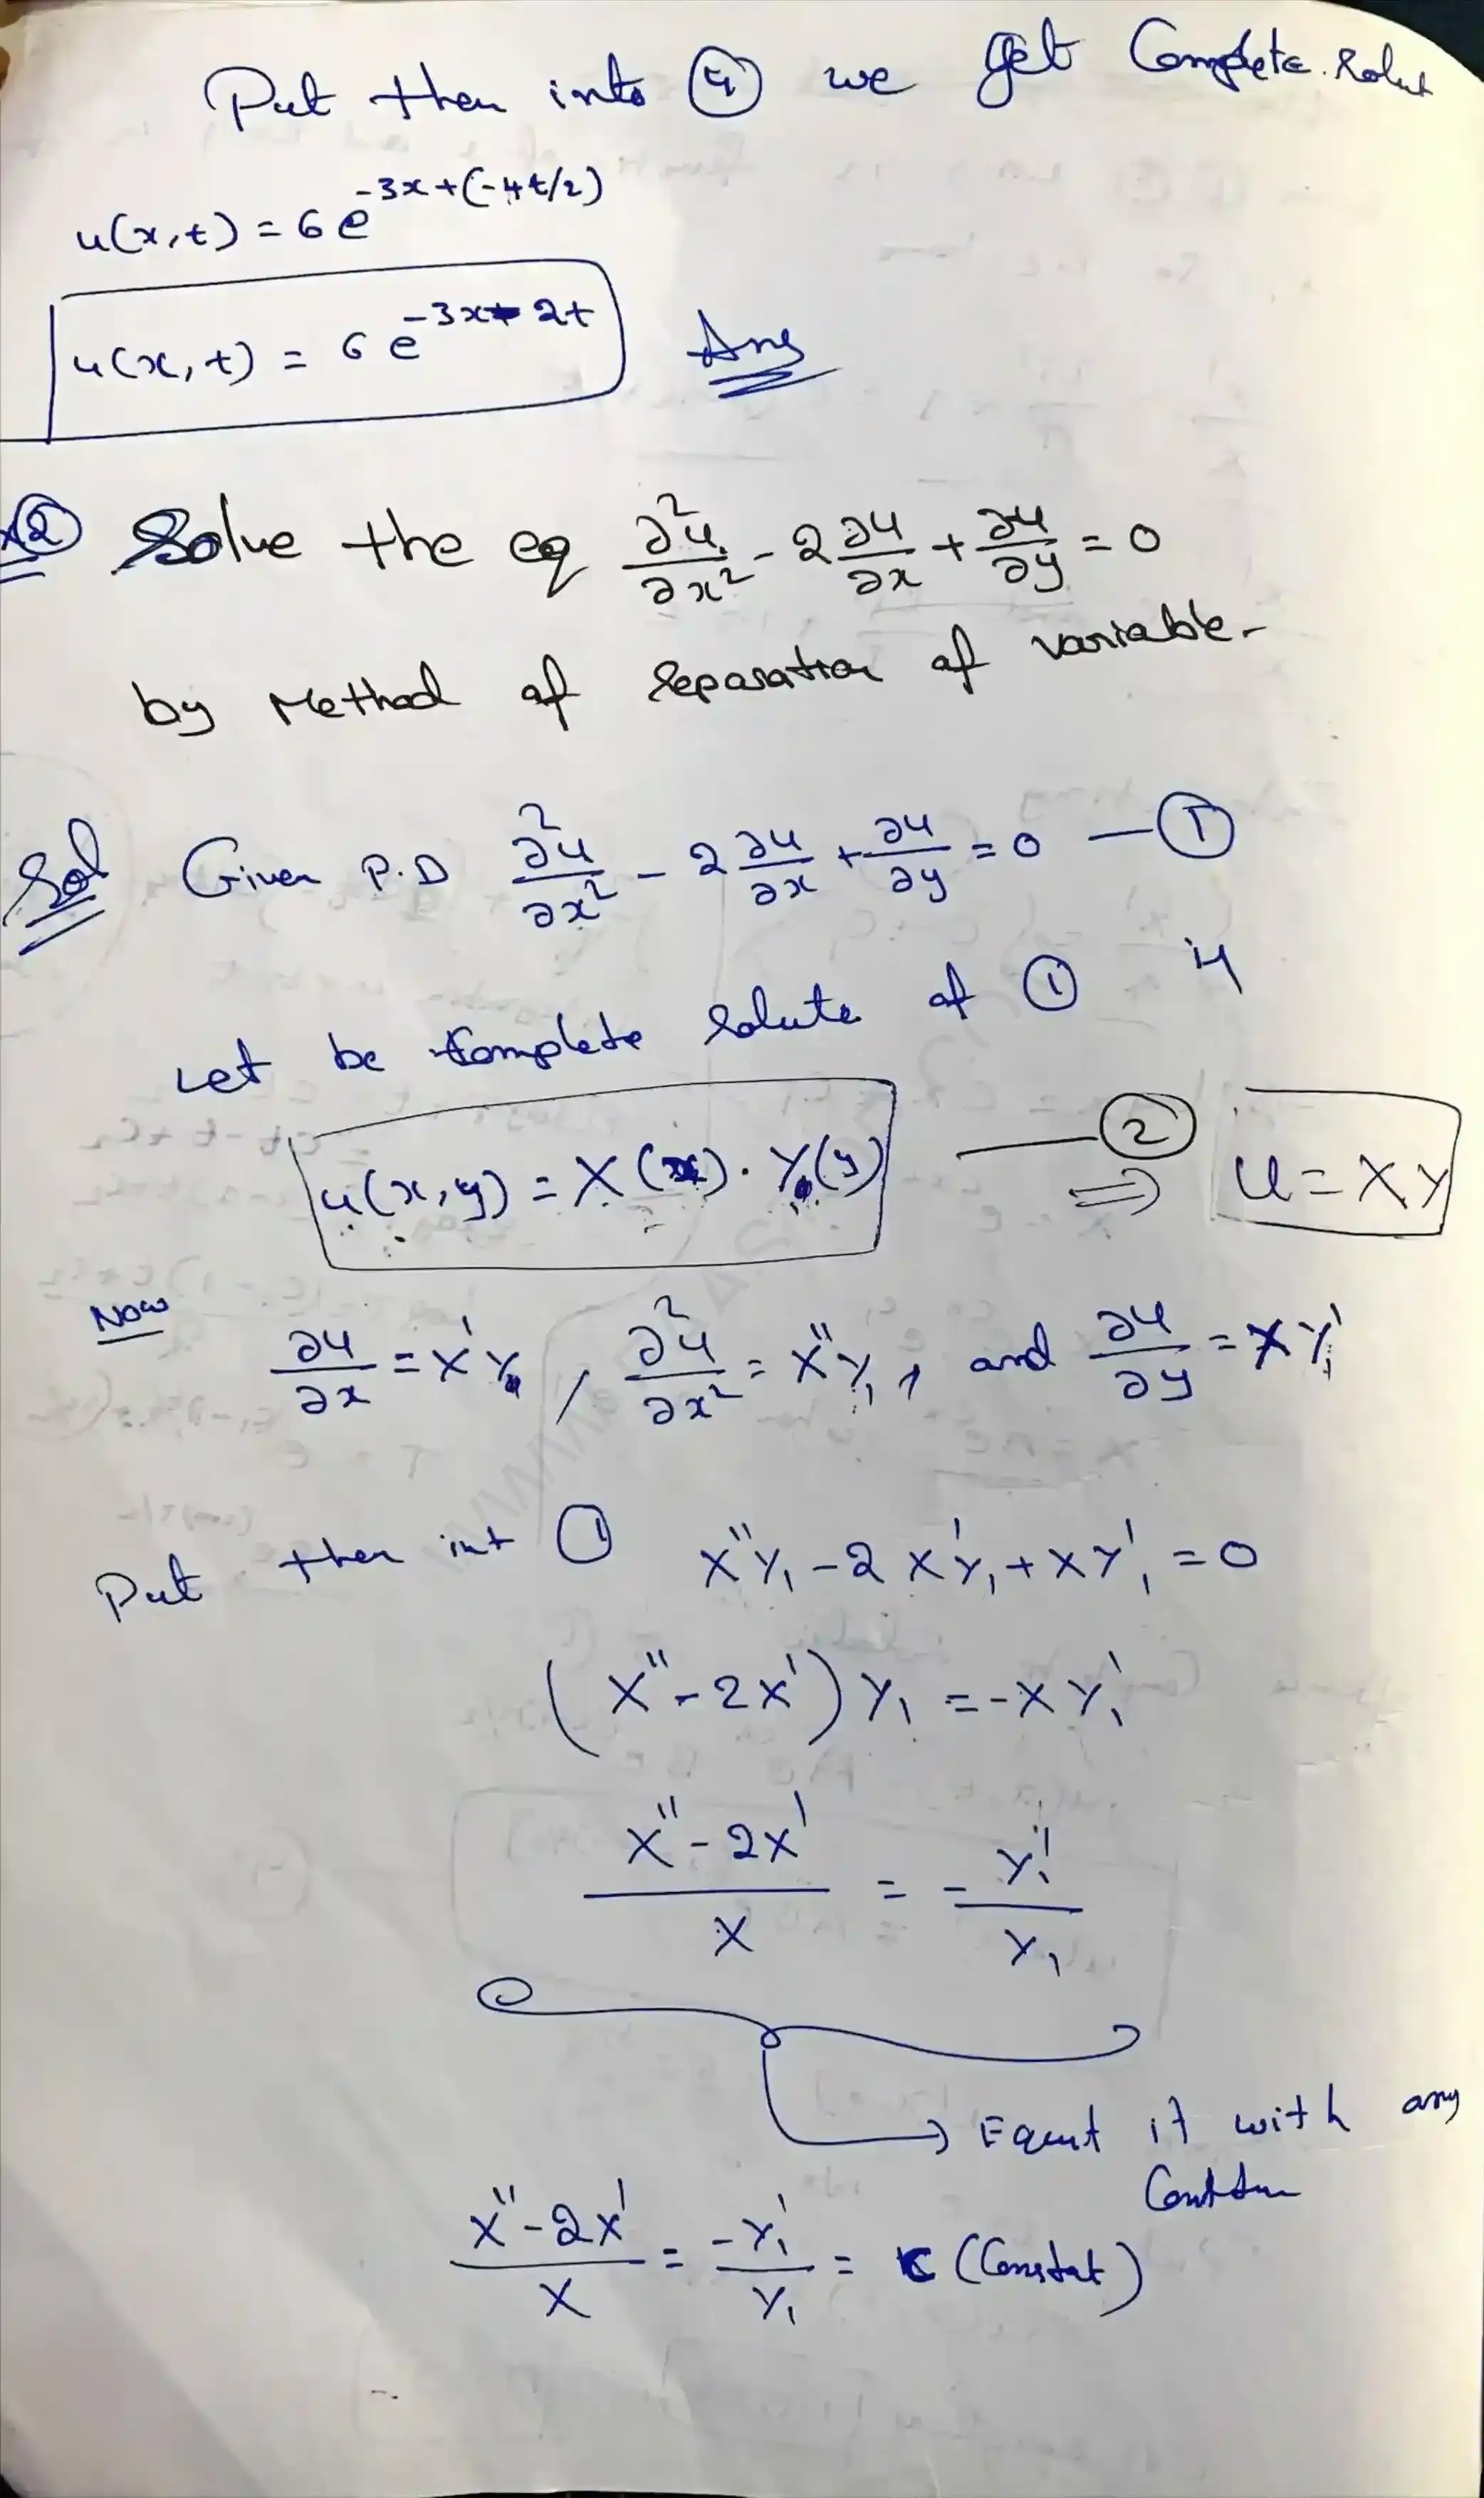 Put then into ④ we get Complete. Solut
u(x,t) = 6 e^{-3x+(-4t/2)}
u(x,t) = 6 e^{-3x-2t} Ans
② Solve the eq ∂²u/∂x² - 2 ∂u/∂x + ∂u/∂y = 0
by Method of separation of variable-
Sol Given P.D ∂²u/∂x² - 2 ∂u/∂x + ∂u/∂y = 0 — ①
Let be Complete solute of ① is
u(x,y) = X(x) · Y(y) — ② ⇒ u = XY
Now ∂u/∂x = X'Y, ∂²u/∂x² = X''Y₁, and ∂u/∂y = XY₁'
Put then int ① X''Y₁ - 2X'Y₁ + XY₁' = 0
(X'' - 2X')Y₁ = -XY₁'
(X'' - 2X')/X = -Y₁'/Y₁
→ Equt it with any
(X'' - 2X')/X = -Y₁'/Y₁ = c (Constat)